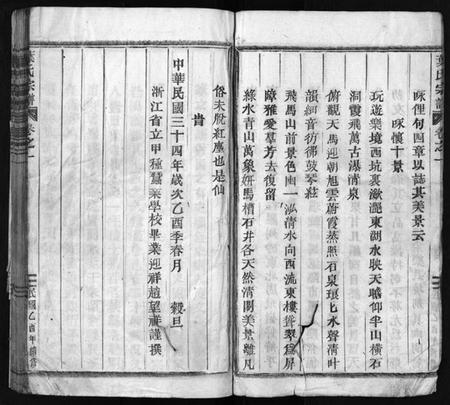 葉氏宗譜
卷之一
咏俚句四章以誌其美景云
咏懷十景
玩遊樂境西坑裏瀲灔東湖水映天瞻仰半山橫石
洞霞飛萬古瀑清泉
俯觀天馬迎朝旭雲蔚霞蒸照石泉琅乚水聲清叶
韻細音彷彿鼓琴絃
飛馬山前景色幽一泓清水向西流東樓聳翠為屏
障雅愛羣芳去復留
綠水青山萬象妍馬槽石井各天然清閑美景離凡
俗未脫紅塵也是仙
旹
中華民國三十四年歲次乙酉季春月 穀旦
浙江省立甲種蠶桑學校畢業迎祥趙望祥謹撰
葉氏宗譜
卷之一
民國乙酉年續修